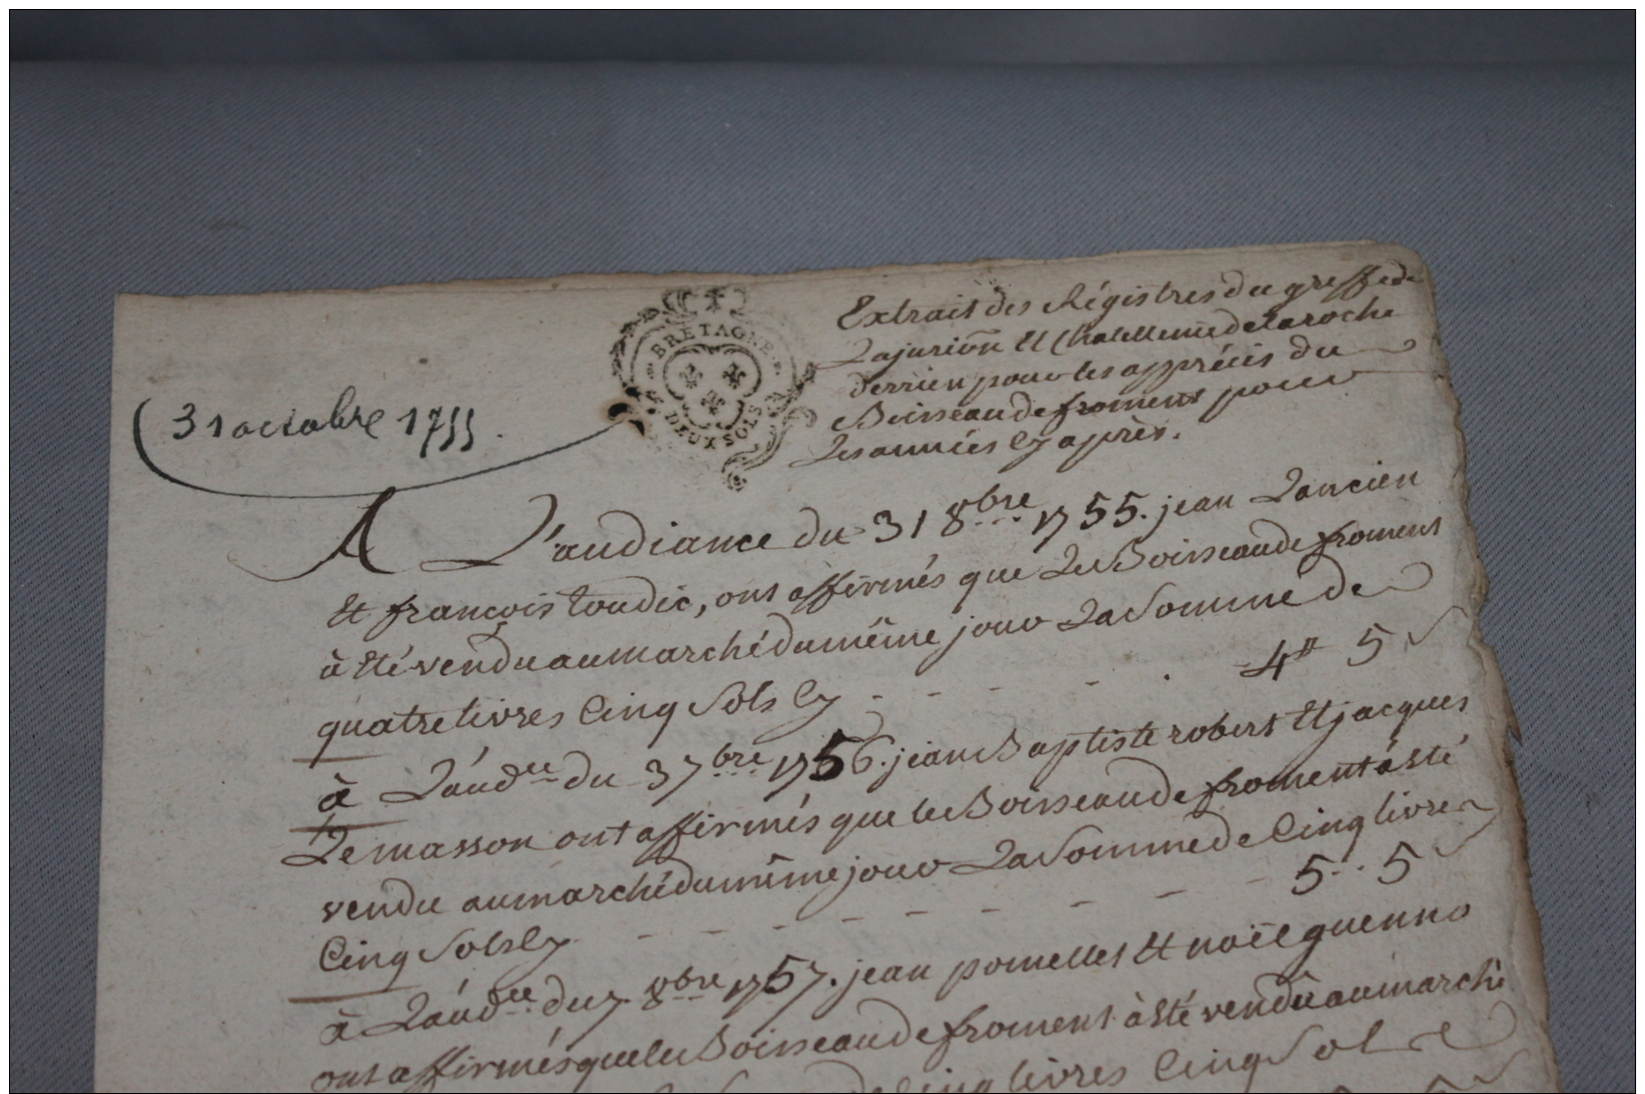 31 octobre 1755.
BRETAGNE
DEUX SOLS
Extrait des Régistres du greffe de
La jurion Et Chatellenie de La roche
derrien pour les appréciis du
Boisseau de froment pour
Les années Cy après.
A L'audiance du 31 8bre 1755. jean Lancien
Et françois toudic, ont affirmés que Le Boisseau de froment
à Eté vendu au marché du même jour La Somme de
quatre livres Cinq Sols Cy - - - - - . 4# 5 s
à L'audce du 3 7bre 1756. jean Baptiste robert Et jacques
Le masson ont affirmés que le Boisseau de froment à Eté
vendu au marché du même jour La Somme de Cinq livres
Cinq Sols Cy - - - - - - - - 5 .. 5 s
à L'audce du 7 8bre 1757. jean pomelles Et noël guenno
ont affirmés que le Boisseau de froment à Eté vendu au marché
de Cinq livres Cinq Sols